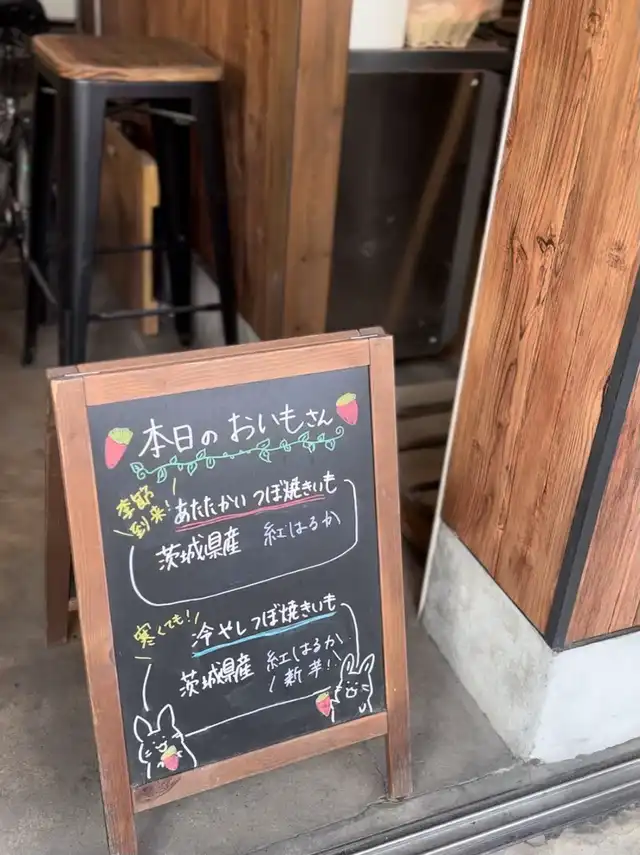 本日のおいもさん
季節
到来!
あたたかい つぼ焼きいも
茨城県産 紅はるか
寒くても!
冷やしつぼ焼きいも
茨城県産 紅はるか
新芋!